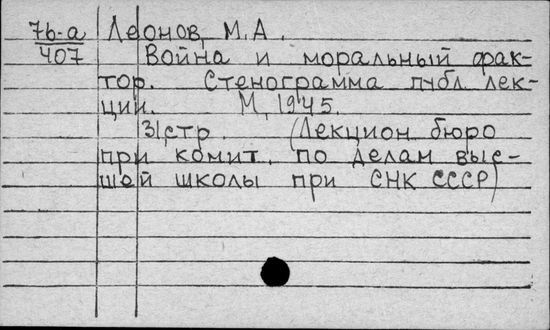 76-а Леонов, М.А.
407 Война и моральный фак-
тор. Стенограмма публ. лек-
ции. М, 1945.
31 стр. (Лекцион. бюро
при комит. по делам выс-
шей школы при СНК СССР)